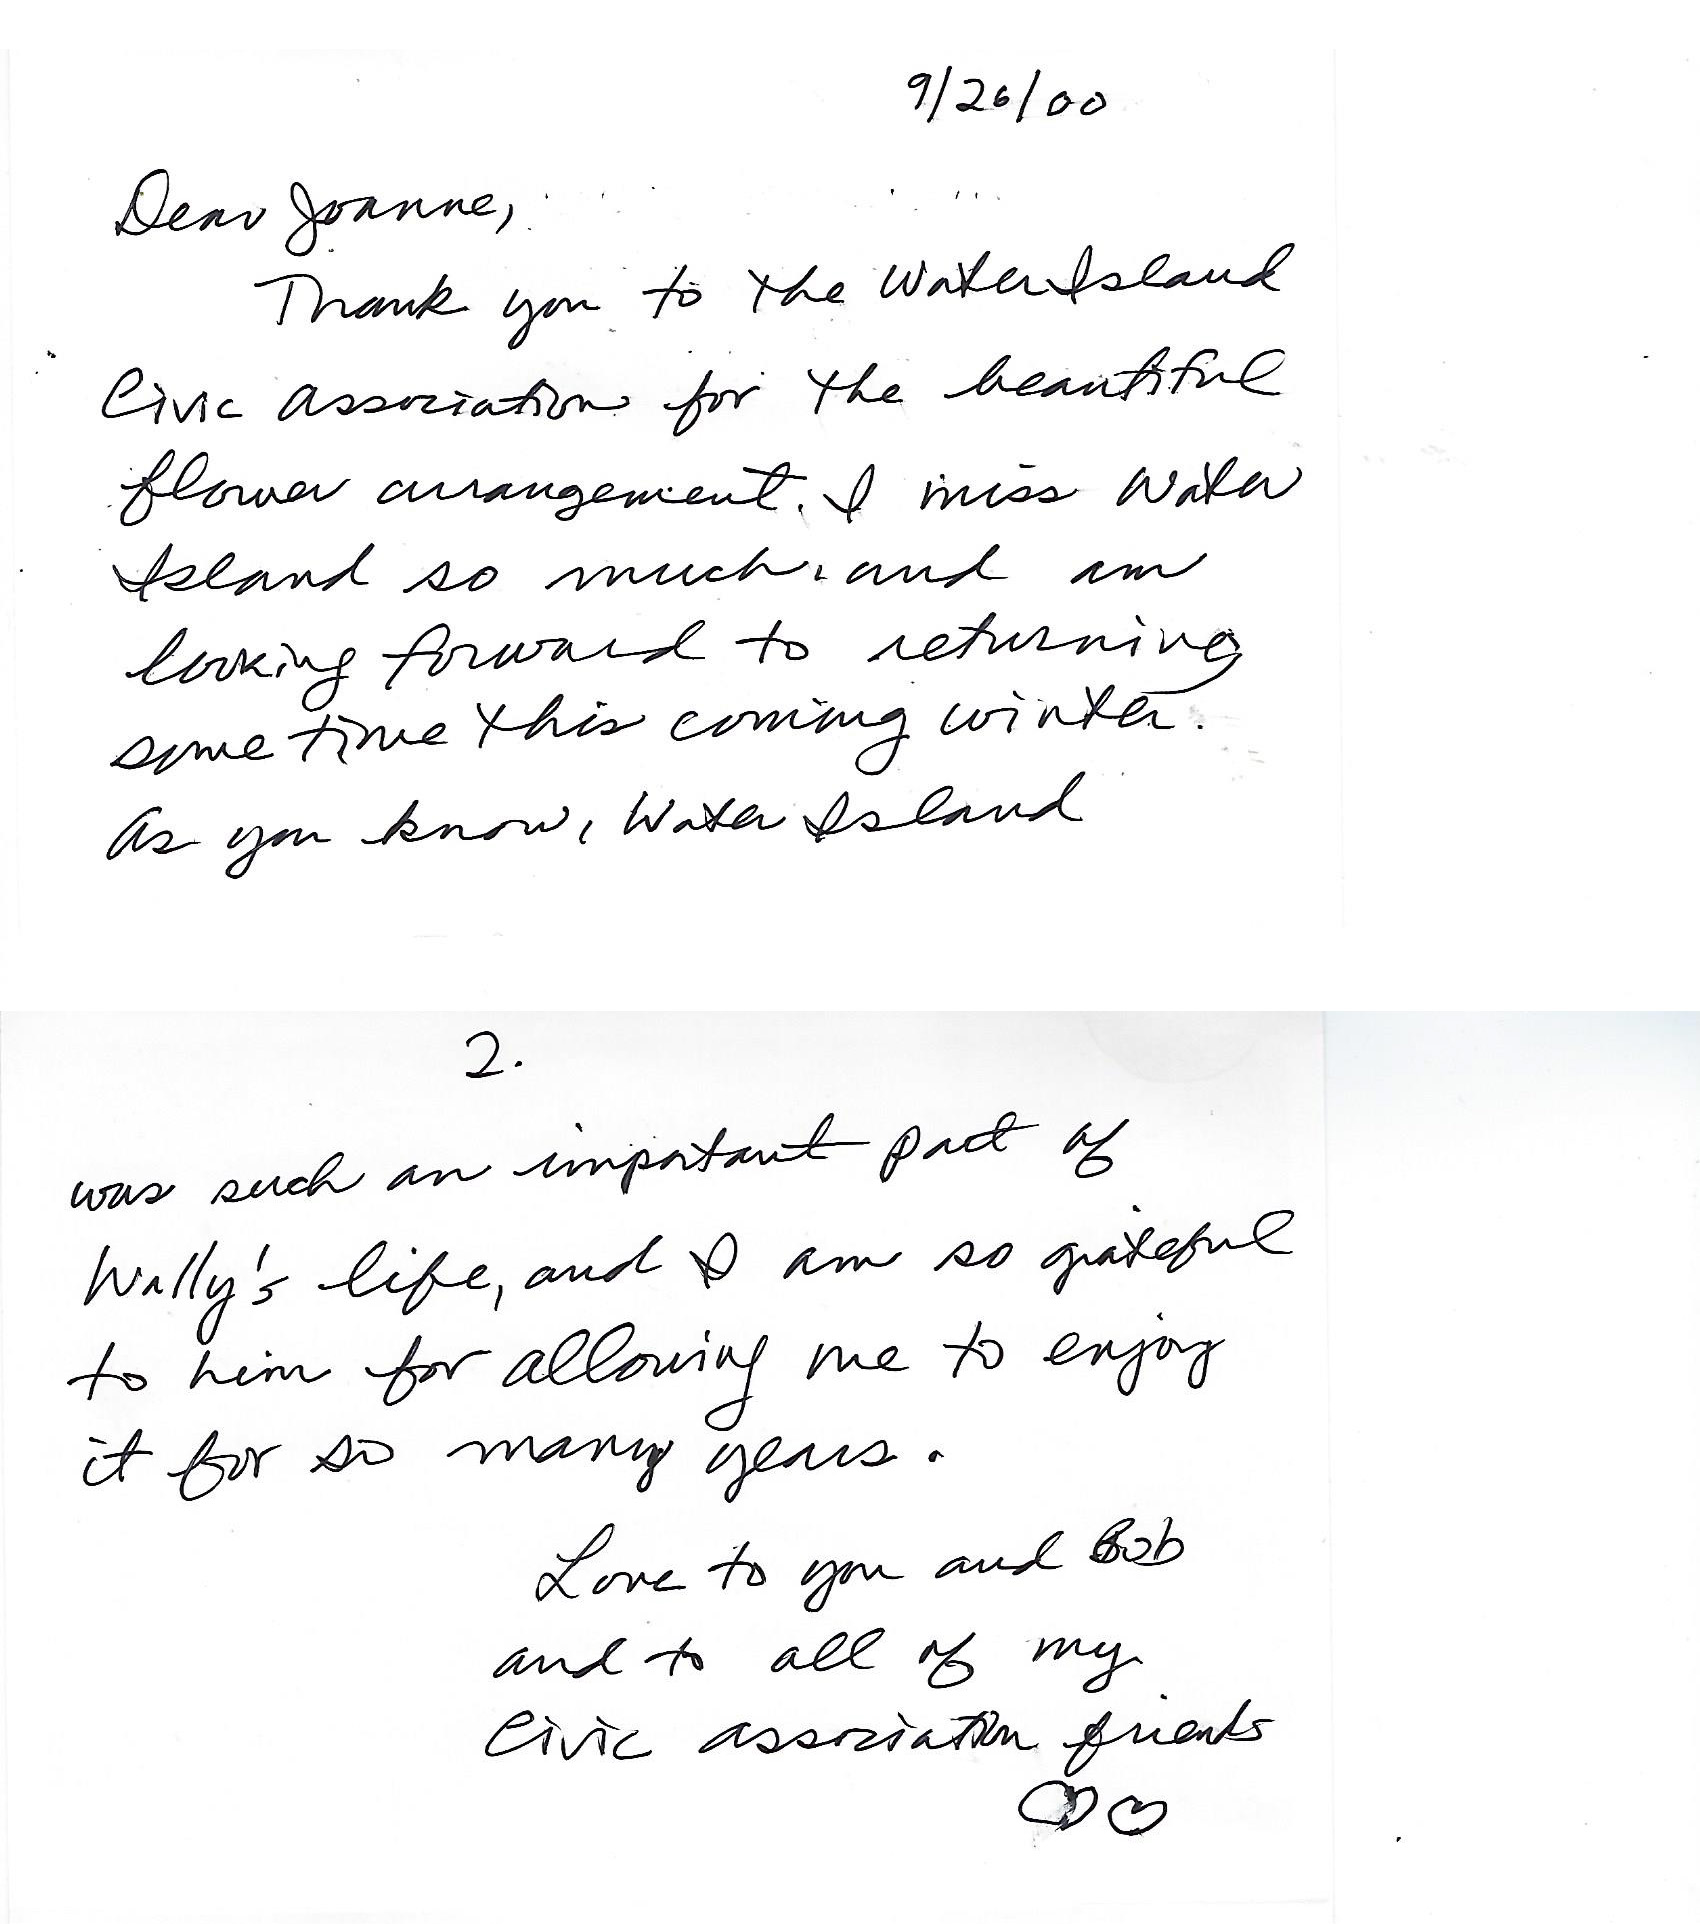 9/26/00
Dear Joanne,
Thank you to the Water Island
Civic Association for the beautiful
flower arrangement. I miss Water
Island so much, and am
looking forward to returning
some time this coming winter.
As you know, Water Island
2.
was such an important part of
Wally's life, and I am so grateful
to him for allowing me to enjoy
it for so many years.
Love to you and Bob
and to all of my
Civic Association friends